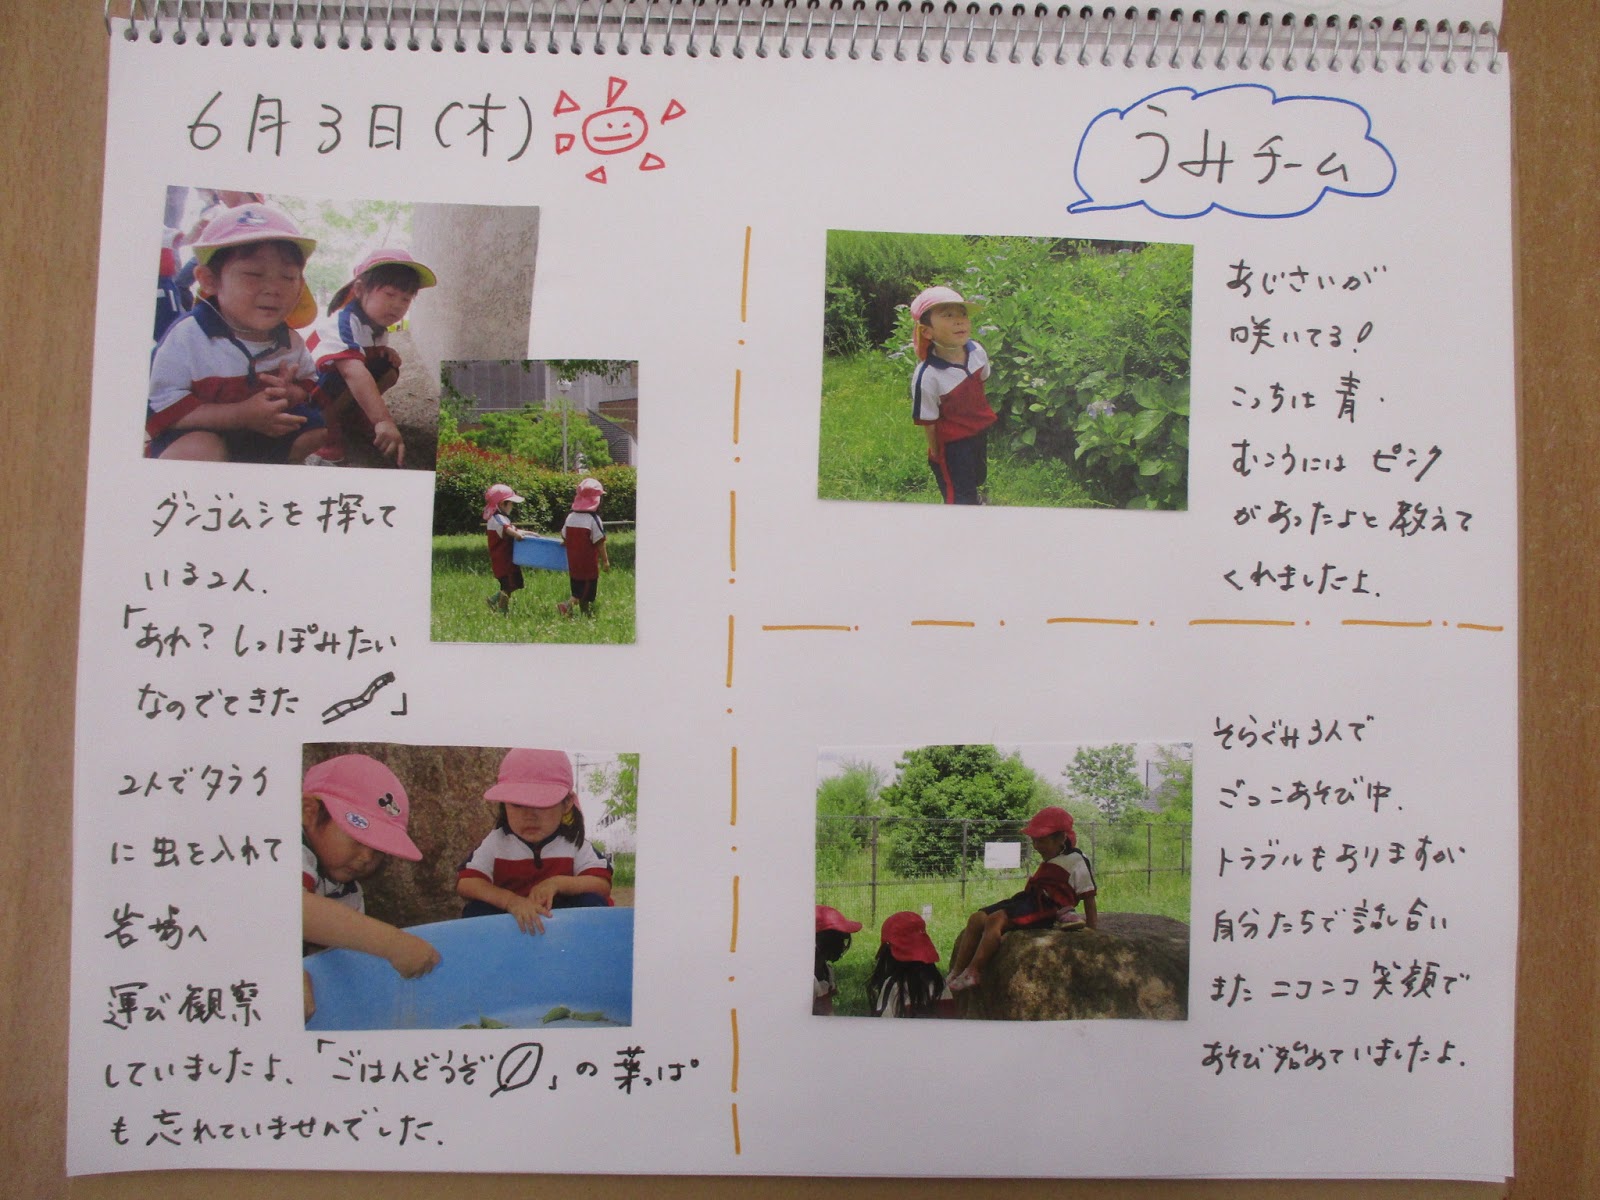 6月3日(木)
うみチーム
ダンゴムシを探して
いる2人.
「あれ?しっぽみたい
なのでてきた 」
2人でタライ
に虫を入れて
岩場へ
運び観察
していましたよ、「ごはんどうぞ 」の葉っぱ
も忘れていませんでした.
あじさいが
咲いてる!
こっちは青.
むこうにはピンク
があったよと教えて
くれましたよ.
そらぐみ3人で
ごっこあそび中.
トラブルもありますが
自分たちで話し合い
またニコニコ笑顔で
あそび始めていましたよ.